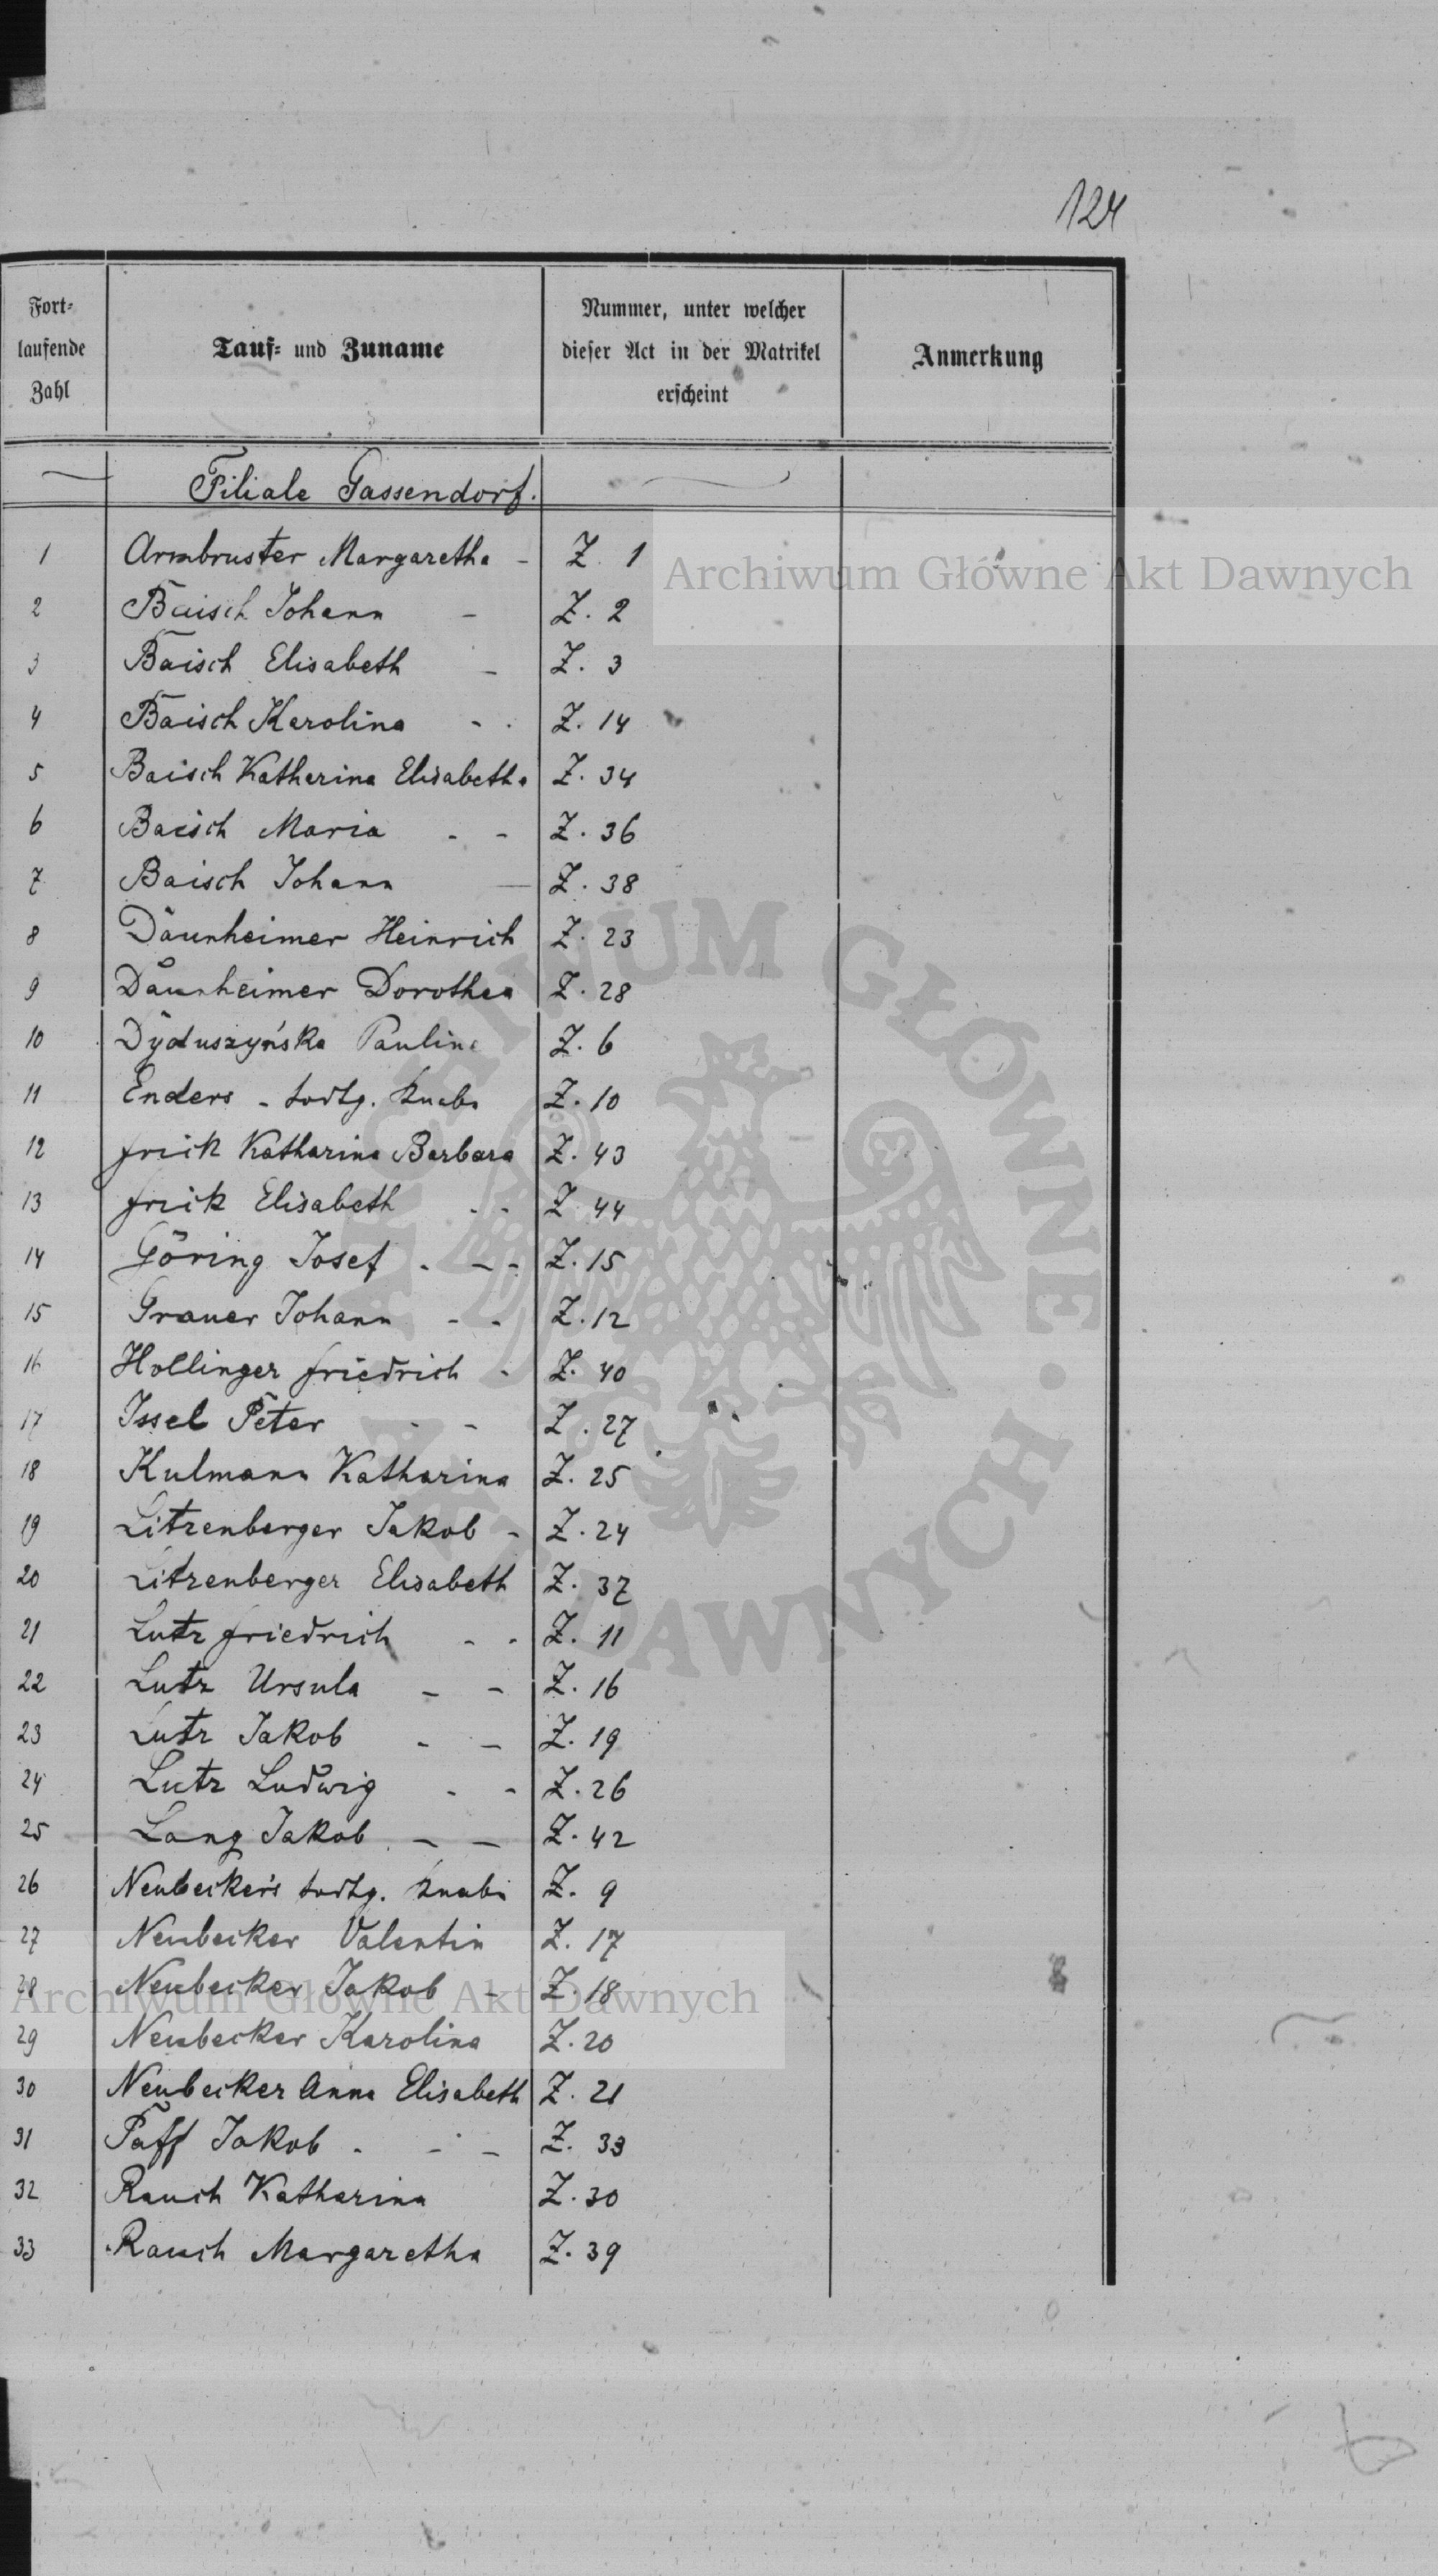 124
Fort-
laufende
Zahl
Tauf- und Zuname
Nummer, unter welcher
dieser Act in der Matrikel
erscheint
Anmerkung
Filiale Gassendorf.
1 Armbruster Margaretha - Z. 1
2 Baisch Johann - Z. 2
3 Baisch Elisabeth - Z. 3
4 Baisch Karolina - - Z. 14
5 Baisch Katharina Elisabetha Z. 34
6 Baisch Maria - - Z. 36
7 Baisch Johann - Z. 38
8 Däunheimer Heinrich Z. 23
9 Däunheimer Dorothea Z. 28
10 Dyduszyńska Paulina Z. 6
11 Enders - todtg. Knabe Z. 10
12 Frick Katharina Barbara Z. 43
13 Frick Elisabeth - - Z. 44
14 Göring Josef - - - Z. 15
15 Grauer Johann - - Z. 12
16 Hollinger Friedrich - Z. 40
17 Issel Peter - - Z. 27
18 Kulmann Katharina Z. 25
19 Litzenberger Jakob - Z. 24
20 Litzenberger Elisabeth Z. 37
21 Lutz Friedrich - - Z. 11
22 Lutz Ursula - - Z. 16
23 Lutz Jakob - - Z. 19
24 Lutz Ludwig - - Z. 26
25 Lang Jakob - - Z. 42
26 Neubecker's todtg. Knabe Z. 9
27 Neubecker Valentin Z. 17
28 Neubecker Jakob - Z. 18
29 Neubecker Karolina Z. 20
30 Neubecker Anna Elisabeth Z. 21
31 Paff Jakob - - - Z. 33
32 Rauch Katharina Z. 30
33 Rauch Margaretha Z. 39
Archiwum Główne Akt Dawnych
ARCHIWUM GŁÓWNE · AKT DAWNYCH
Archiwum Główne Akt Dawnych